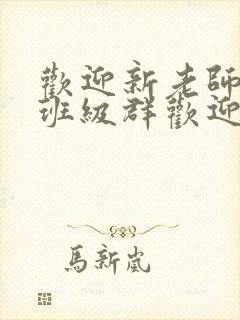 歡迎新老師
班級群歡迎
馬新嵐